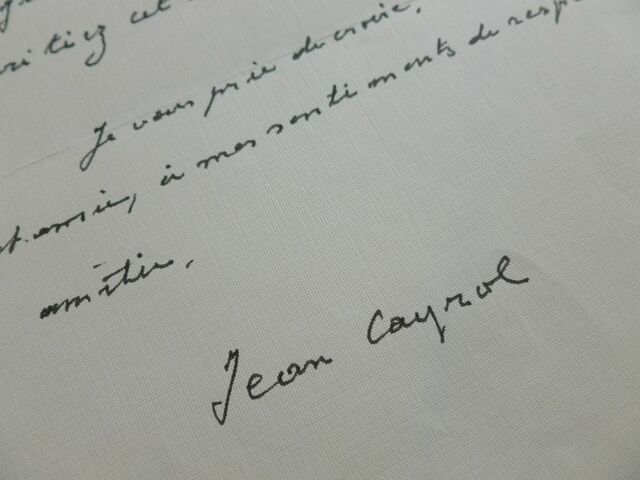 ritiez cet
Je vous prie de croire,
et amie, à mes sentiments de resp
amitié.
Jean Cayrol